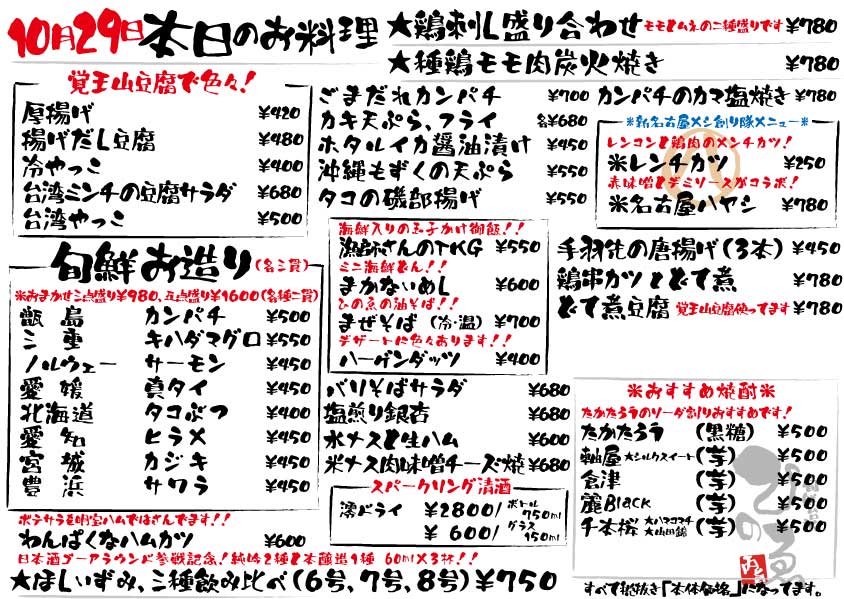 10月29日 本日のお料理
★鶏刺し盛り合わせ モモとムネの二種盛りです ¥780
★種鶏モモ肉炭火焼き ¥780
覚王山豆腐で色々！
厚揚げ ¥420
揚げだし豆腐 ¥480
冷やっこ ¥400
台湾ミンチの豆腐サラダ ¥680
台湾やっこ ¥500
旬鮮お造り(各三貫)
※おまかせ三点盛り¥980、五点盛り¥1600(各種二貫)
甑島 カンパチ ¥500
三重 キハダマグロ ¥550
ノルウェー サーモン ¥450
愛媛 真タイ ¥450
北海道 タコぶつ ¥400
愛知 ヒラメ ¥450
宮城 カジキ ¥450
豊浜 サワラ ¥450
ポテサラを明宝ハムではさんでます！！
わんぱくなハムカツ ¥600
日本酒ゴーアラウンド参戦記念！純吟2種と本醸造1種 60ml×3杯！！
★ほしいずみ、三種飲み比べ(6号、7号、8号)¥750
ごまだれカンパチ ¥700
カキ天ぷら、フライ 各¥680
ホタルイカ醤油漬け ¥450
沖縄もずくの天ぷら ¥550
タコの磯部揚げ ¥550
海鮮入りの玉子かけ御飯！！
漁師さんのTKG ¥550
ミニ海鮮どん！！
まかないめし ¥600
ひの魚の油そば！！
まぜそば (冷・温) ¥700
デザートに色々あります！！
ハーゲンダッツ ¥400
バリそばサラダ ¥680
塩煎り銀杏 ¥680
水ナスと生ハム ¥600
米ナス肉味噌チーズ焼 ¥680
スパークリング清酒
澪ドライ ¥2800/ボトル750ml
¥600/グラス150ml
カンパチのカマ塩焼き ¥780
※新名古屋メシ創り隊メニュー※
レンコンと鶏肉のメンチカツ！
※レンチカツ ¥250
赤味噌とデミソースがコラボ！
※名古屋ハヤシ ¥780
手羽先の唐揚げ(3本) ¥450
鶏串カツとどて煮 ¥780
どて煮豆腐 覚王山豆腐使ってます ¥780
※おすすめ焼酎※
たかたろうのソーダ割りおすすめです！
たかたろう (黒糖) ¥500
軸屋 ★シルクスイート (芋) ¥500
倉津 (芋) ¥500
麗Black (芋) ¥500
千本桜 ★ハマコマチ ★山田錦 (芋) ¥500
すべて税抜き「本体価格」になってます。